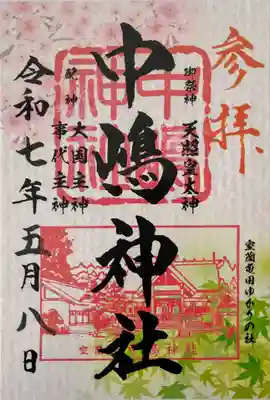 参拝
室蘭屯田ゆかりの社
御祭神 天照皇大神
中嶋神社
配神 大国主神
事代主神
令和七年五月八日
中嶋神社
室蘭 嶋神社